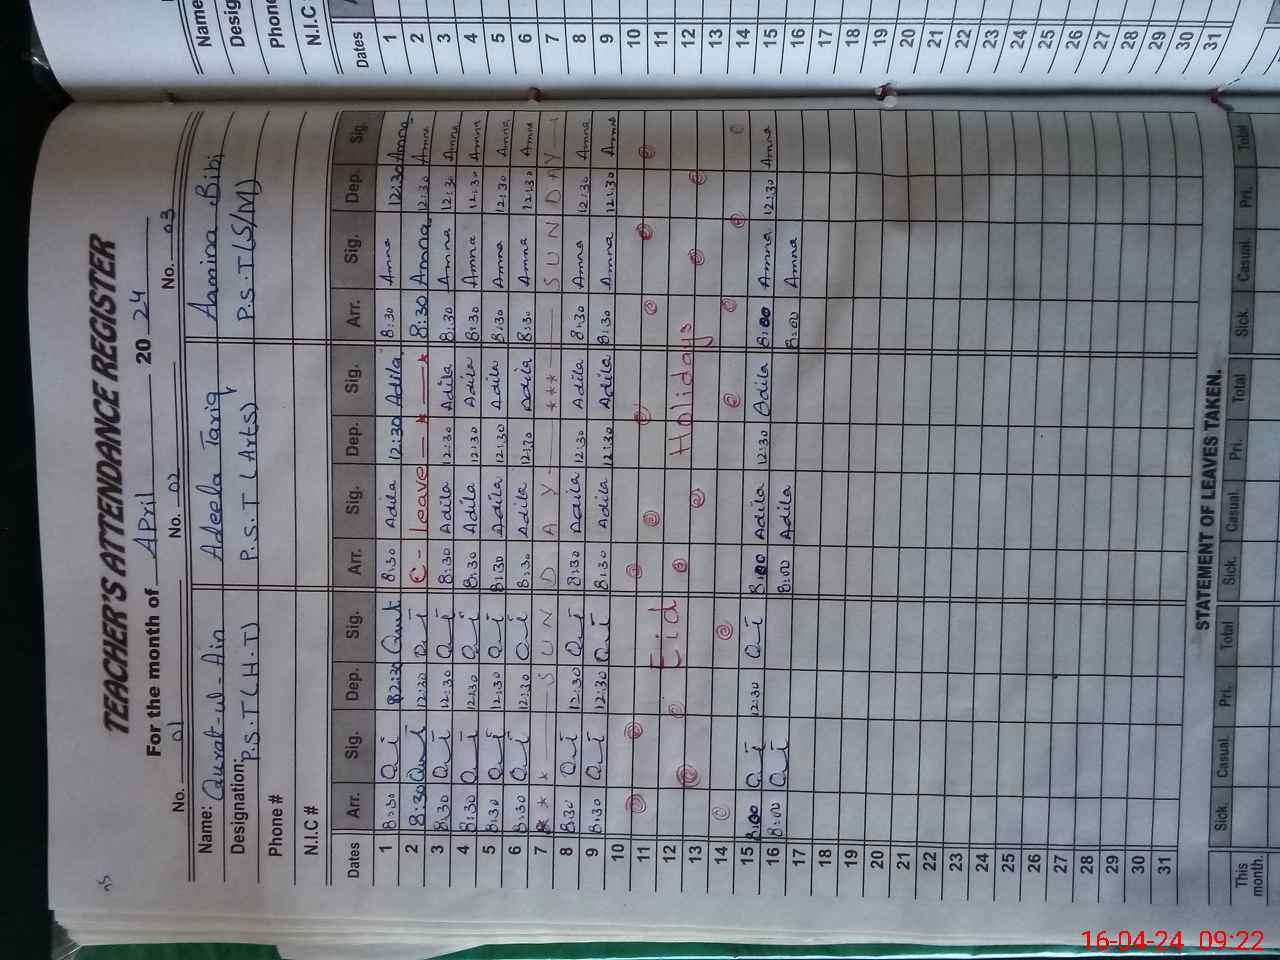 TEACHER'S ATTENDANCE REGISTER
For the month of April 2024
No. 01 No. 02 No. 03
Name: Qurat-ul-Ain Adeela Tariq Aamina Bibi
Designation: P.S.T (H.T) P.S.T (Arts) P.S.T (S/M)
Phone #
N.I.C #
Dates Arr. Sig. Dep. Sig. Arr. Sig. Dep. Sig. Arr. Sig. Dep. Sig.
1 8:30 12:30 8:30 Adila 12:30 Adila 8:30 Amna 12:30 Amna
2 8:30 12:30 C - leave 8:30 Amna 12:30 Amna
3 8:30 12:30 8:30 Adila 12:30 Adila 8:30 Amna 12:30 Amna
4 8:30 12:30 8:30 Adila 12:30 Adila 8:30 Amna 12:30 Amna
5 8:30 12:30 8:30 Adila 12:30 Adila 8:30 Amna 12:30 Amna
6 8:30 12:30 8:30 Adila 12:30 Adila 8:30 Amna 12:30 Amna
7 SUNDAY *** SUNDAY
8 8:30 12:30 8:30 Adila 12:30 Adila 8:30 Amna 12:30 Amna
9 8:30 12:30 8:30 Adila 12:30 Adila 8:30 Amna 12:30 Amna
10
11
12 Eid Holidays
13
14
15 8:00 12:30 8:00 Adila 12:30 Adila 8:00 Amna 12:30 Amna
16 8:00 8:00 Adila 8:00 Amna
17
18
19
20
21
22
23
24
25
26
27
28
29
30
31
STATEMENT OF LEAVES TAKEN.
Sick. Casual. Pri. Total Sick. Casual. Pri. Total Sick. Casual. Pri. Total
This month.
Name
Desig
Phone
N.I.C
Dates
1
2
3
4
5
6
7
8
9
10
11
12
13
14
15
16
17
18
19
20
21
22
23
24
25
26
27
28
29
30
31
16-04-24 09:22